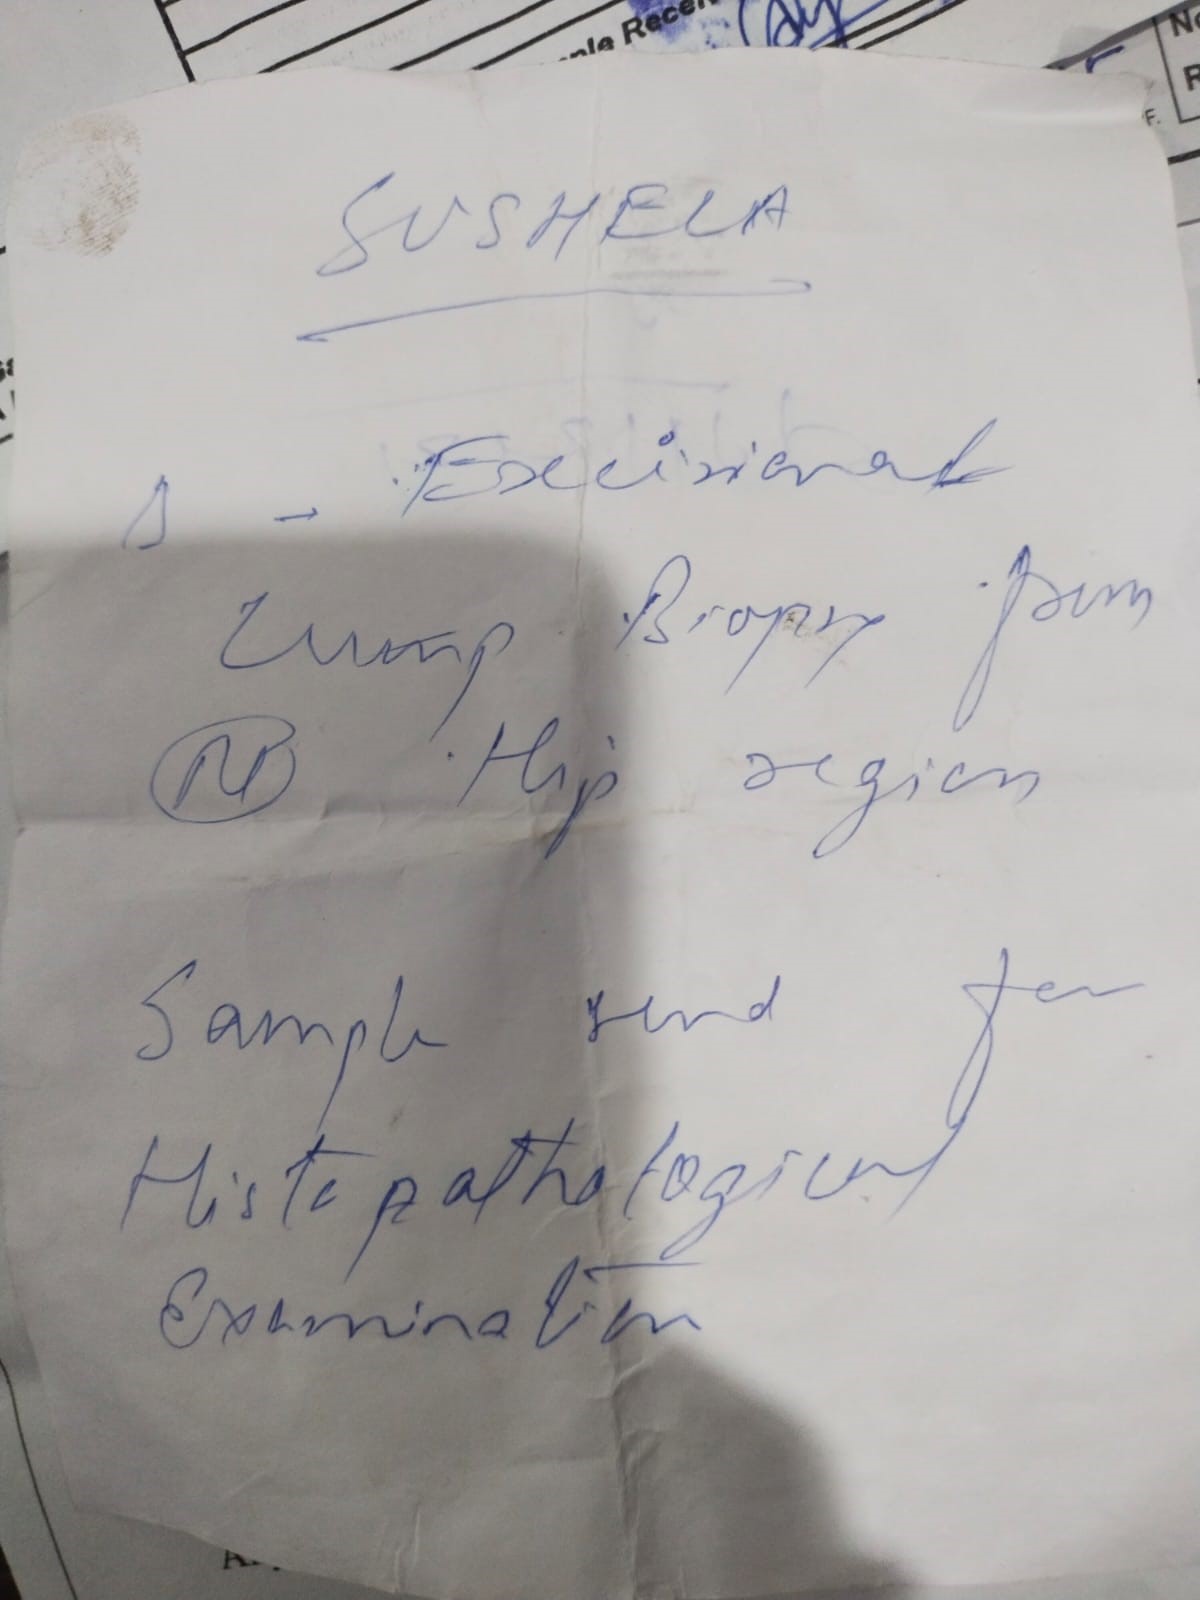 ple Recei
SUSHELA
Δ - Excisional
Lump Biopsy from
(R) Hip region
Sample send for
Histopathological
Examination